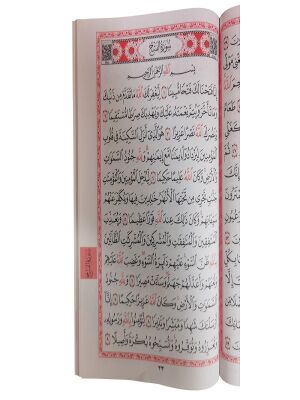 سُورَةُ الفَتْحِ
بِسْمِ اللَّهِ الرَّحْمَٰنِ الرَّحِيمِ
إِنَّا فَتَحْنَا لَكَ فَتْحًا مُّبِينًا ١ لِّيَغْفِرَ لَكَ اللَّهُ مَا تَقَدَّمَ مِن ذَنۢبِكَ
وَمَا تَأَخَّرَ وَيُتِمَّ نِعْمَتَهُۥ عَلَيْكَ وَيَهْدِيَكَ صِرَٰطًا مُّسْتَقِيمًا ٢
وَيَنصُرَكَ اللَّهُ نَصْرًا عَزِيزًا ٣ هُوَ الَّذِىٓ أَنزَلَ السَّكِينَةَ فِى قُلُوبِ
الْمُؤْمِنِينَ لِيَزْدَادُوٓا۟ إِيمَٰنًا مَّعَ إِيمَٰنِهِمْ وَلِلَّهِ جُنُودُ السَّمَٰوَٰتِ
وَالْأَرْضِ وَكَانَ اللَّهُ عَلِيمًا حَكِيمًا ٤ لِّيُدْخِلَ الْمُؤْمِنِينَ وَالْمُؤْمِنَٰتِ
جَنَّٰتٍ تَجْرِى مِن تَحْتِهَا الْأَنْهَٰرُ خَٰلِدِينَ فِيهَا وَيُكَفِّرَ عَنْهُمْ
سَيِّـَٔاتِهِمْ وَكَانَ ذَٰلِكَ عِندَ اللَّهِ فَوْزًا عَظِيمًا ٥ وَيُعَذِّبَ
الْمُنَٰفِقِينَ وَالْمُنَٰفِقَٰتِ وَالْمُشْرِكِينَ وَالْمُشْرِكَٰتِ الظَّآنِّينَ
بِاللَّهِ ظَنَّ السَّوْءِ عَلَيْهِمْ دَآئِرَةُ السَّوْءِ وَغَضِبَ اللَّهُ عَلَيْهِمْ
وَلَعَنَهُمْ وَأَعَدَّ لَهُمْ جَهَنَّمَ وَسَآءَتْ مَصِيرًا ٦ وَلِلَّهِ جُنُودُ
السَّمَٰوَٰتِ وَالْأَرْضِ وَكَانَ اللَّهُ عَزِيزًا حَكِيمًا ٧ إِنَّآ
أَرْسَلْنَٰكَ شَٰهِدًا وَمُبَشِّرًا وَنَذِيرًا ٨ لِّتُؤْمِنُوا۟ بِاللَّهِ وَرَسُولِهِۦ
وَتُعَزِّرُوهُ وَتُوَقِّرُوهُ وَتُسَبِّحُوهُ بُكْرَةً وَأَصِيلًا ٩
سُورَةُ الفَتْحِ
٢٢